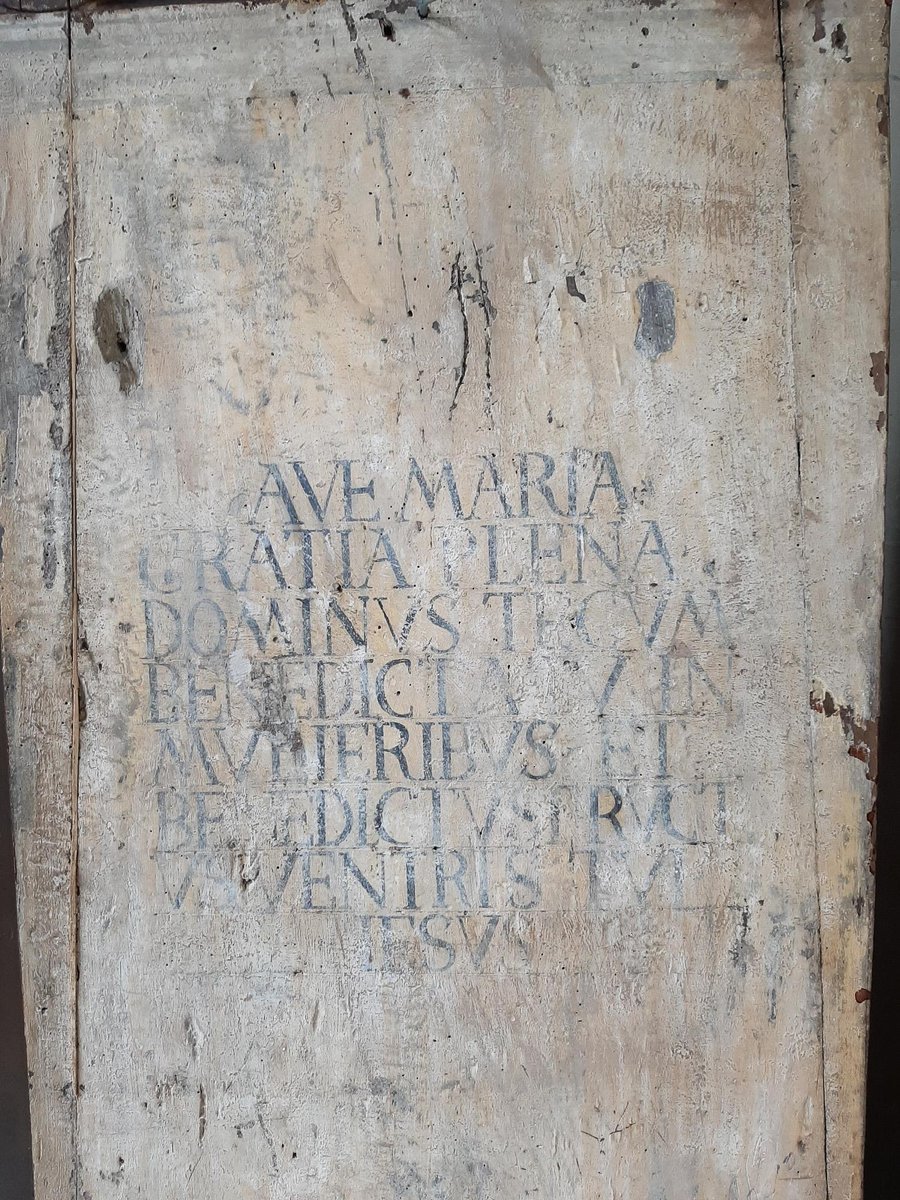 AVE MARIA
GRATIA PLENA
DOMINVS TECVM
BENEDICTA TV IN
MVLIERIBVS ET
BENEDICTVS FRVCT
VS VENTRIS TVI
IESVS